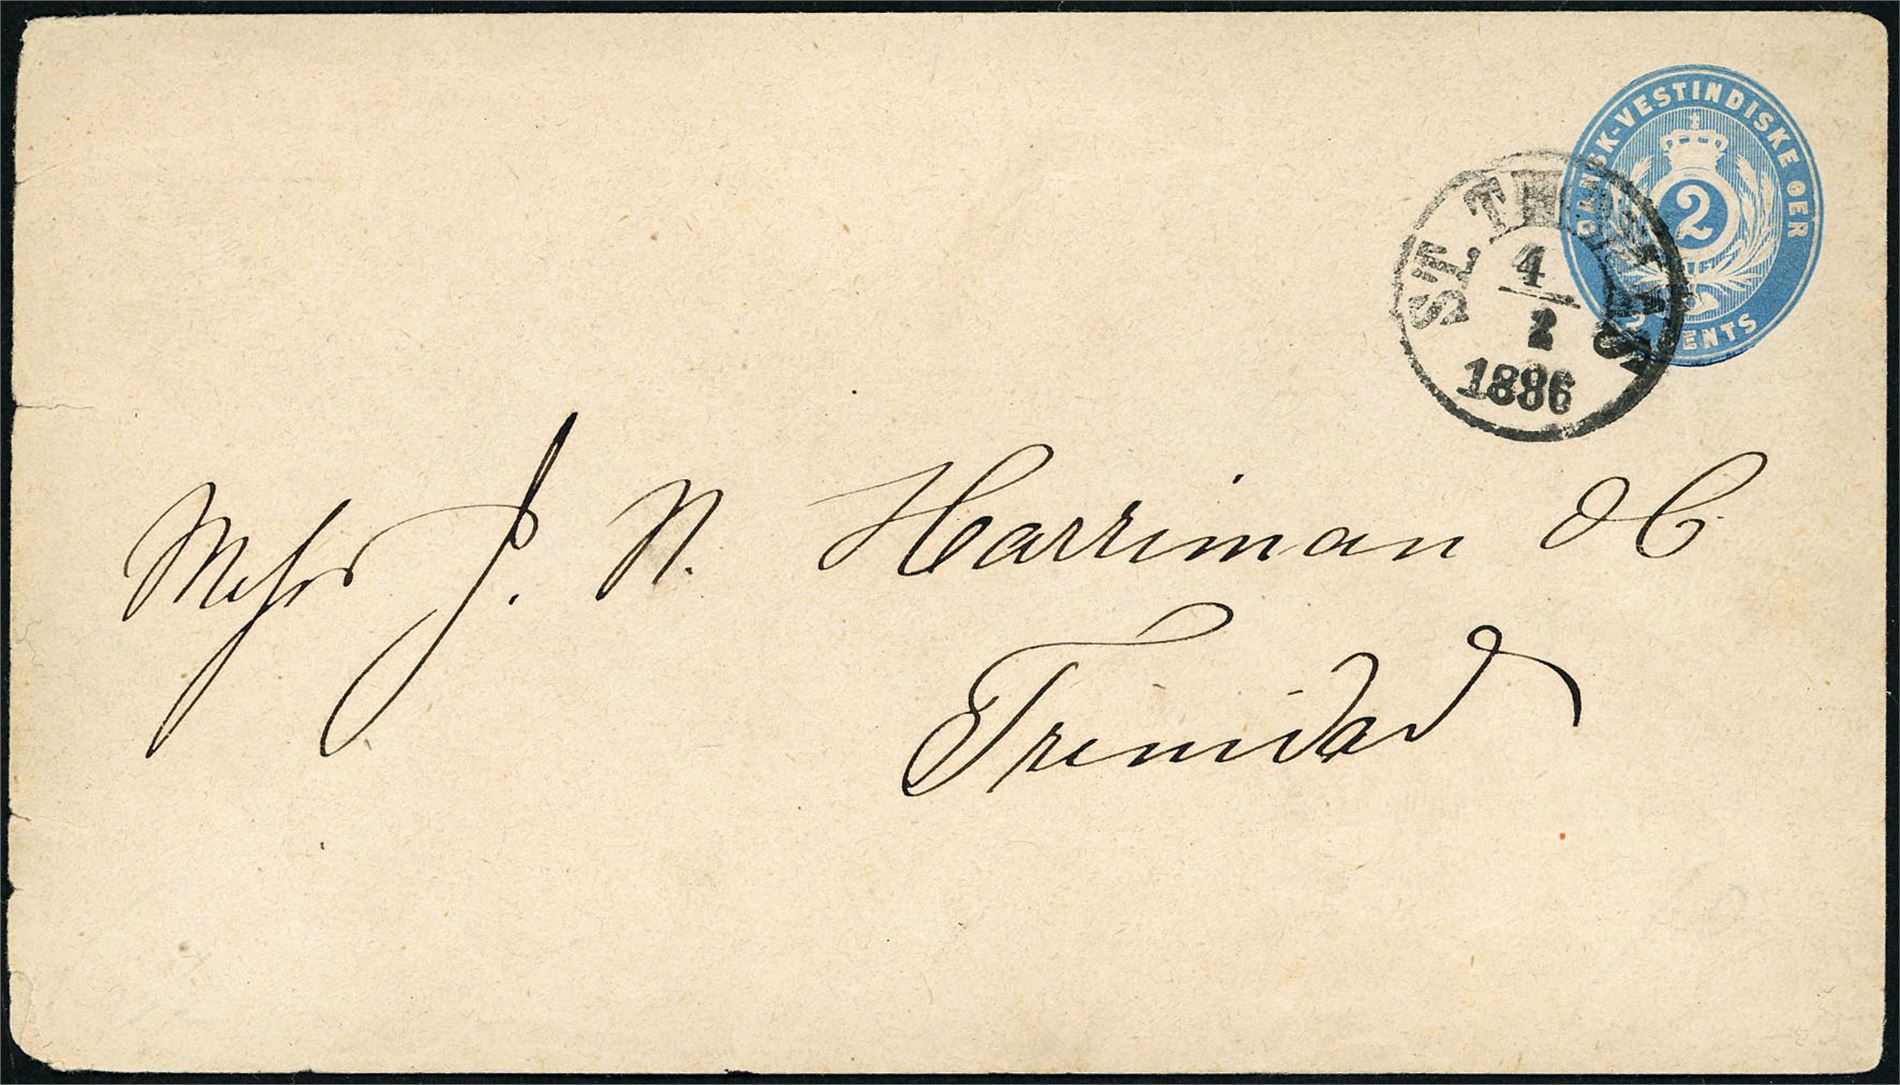 DANSK-VESTINDISKE ØER
2
2 CENTS
ST. THOMAS
4
2
1886
Messrs J. N. Harriman & C
Trinidad